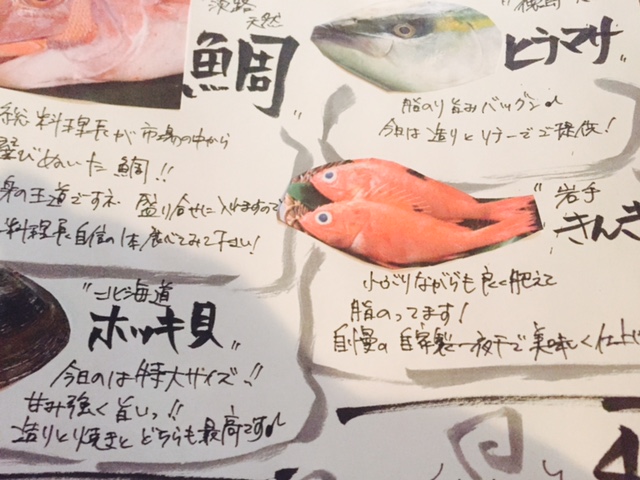 淡路
天然
鯛"
総料理長が市場の中から
選びぬいた鯛!!
身の王道ですネ 盛り合せに入れますので
料理長自信の1本食べてみて下さい!
ヒラマサ
脂のり旨みバツグン♪
今日は造りとソテーでご提供!
"岩手
きんき
小ぶりながらも良く肥えて
脂のってます!
自慢の自家製一夜干で美味しく仕上
"北海道
ホッキ貝"
今日のは特大サイズ!!
甘み強く旨いっ!!
造りと焼きと どちらも最高です♪